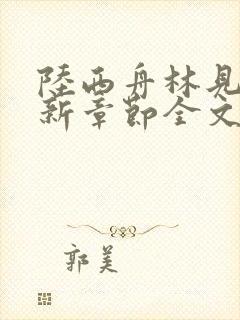 陸西舟林見
新章節全文
郭美